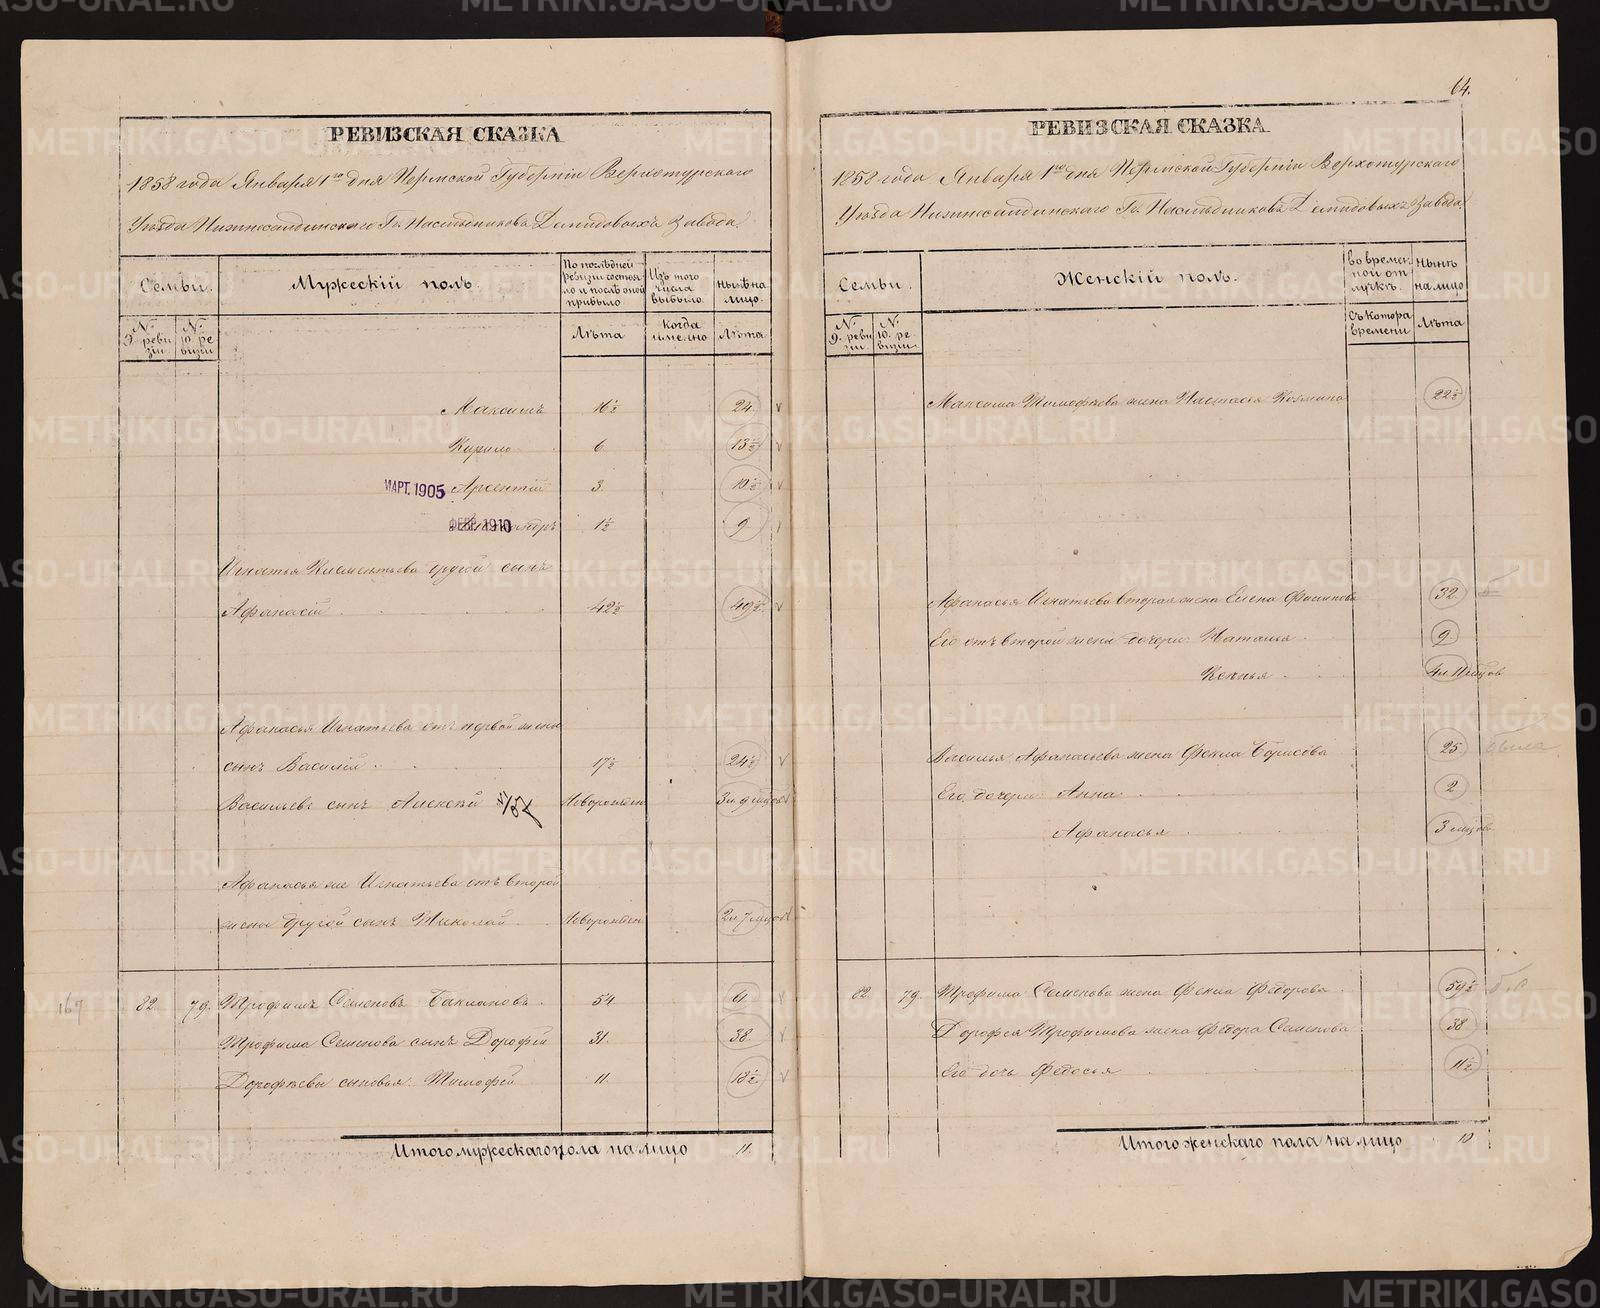 РЕВИЗСКАЯ СКАЗКА
1858 года Января 1го дня Пермской Губерніи Верхотурского
Уѣзда Нижнесалдинского Гг. Наслѣдниковъ Демидовыхъ Завода.
Семьи.
Мужескій полъ.
По послѣдней ревизіи состояло и послѣ оной прибыло
Изъ того числа выбыло.
Нынѣ на лицо.
N. 9. ревизіи
N. 10. ревизіи
Лѣта
Когда именно
Лѣта.
Максимъ 16½ 24. v
Кирило 6. 13½ v
МАРТ. 1905 Арсентій 3. 10½ v
ФЕВР. 1910 1½ 9
Игнатья Климентьева другой сынъ
Афанасій 42½ 49½ v
Афанасья Игнатьева отъ первой жены
сынъ Василій 17½ 24½ v
Васильевъ сынъ Алексѣй Новорожден 3 и 9 мцовъ v
Афанасья же Игнатьева отъ второй
жены другой сынъ Николай Новорожден 2 и 7 мцовъ
167 82. 79. Трофимъ Семеновъ Баклановъ. 54. 61. v
Трофима Семенова сынъ Дорофѣй 31. 38. v
Дорофѣевы сыновья Тимофей 11. 18½ v
Итого мужескаго пола на лицо 11.
64.
РЕВИЗСКАЯ СКАЗКА.
1858 года Января 1го дня Пермской Губерніи Верхотурского
Уѣзда Нижнесалдинского Гг. Наслѣдниковъ Демидовыхъ Завода
Семьи.
Женскій полъ.
Во временной отлучкѣ.
Нынѣ на лицо
N. 9. ревизіи
N. 10. ревизіи
Съ котора времени
Лѣта
Максима Тимофѣева жена Настасья Козмина 22½
Афанасья Игнатьева вторая жена Елена 32
Его отъ второй жены дочери Наталья 9.
Ксенья 4 и 11 мцовъ
Василья Афанасьева жена Фекла Борисова 25 была
Его дочери Анна 2
Афанасья 3 мцовъ
82. 79. Трофима Семенова жена Фекла Федорова 59½
Дорофея Трофимова жена Федора Семенова 38
Его дочь Федосья 11½
Итого женскаго пола на лицо 10
METRIKI.GASO-URAL.RU